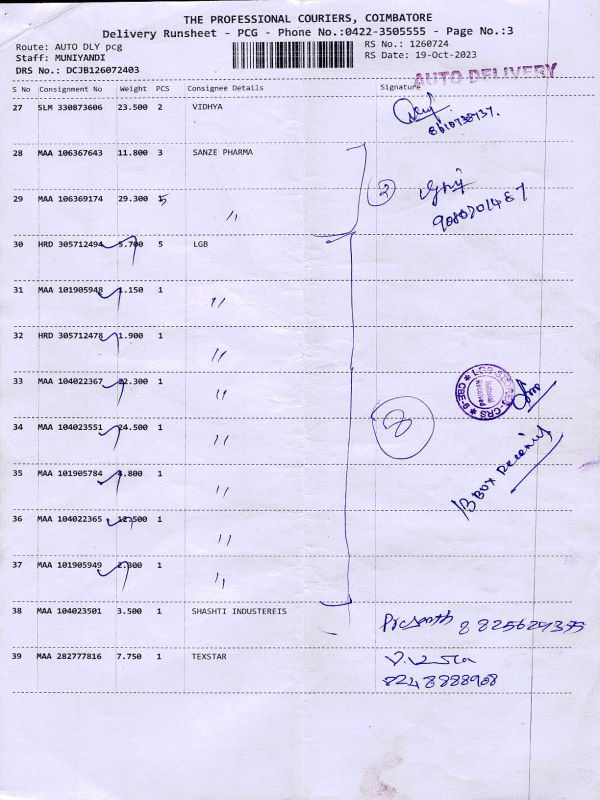 THE PROFESSIONAL COURIERS, COIMBATORE
Delivery Runsheet - PCG - Phone No.:0422-3505555 - Page No.:3
Route: AUTO DLY pcg
Staff: MUNIYANDI
DRS No.: DCJB126072403
RS No.: 1260724
RS Date: 19-Oct-2023
AUTO DELIVERY
S No Consignment No Weight PCS Consignee Details Signature
27 SLM 330873606 23.500 2 VIDHYA
.
28 MAA 106367643 11.800 3 SANZE PHARMA
2
29 MAA 106369174 29.300 5 "
30 HRD 305712494 5.700 5 LGB
31 MAA 101905948 1.150 1 "
32 HRD 305712478 1.900 1 "
33 MAA 104022367 22.300 1 "
34 MAA 104023551 24.500 1 "
8
35 MAA 101905784 4.800 1 "
13 BOX Received
36 MAA 104022365 12.500 1 "
37 MAA 101905949 2.300 1 "
38 MAA 104023501 3.500 1 SHASHTI INDUSTEREIS
39 MAA 282777816 7.750 1 TEXSTAR
8248888908